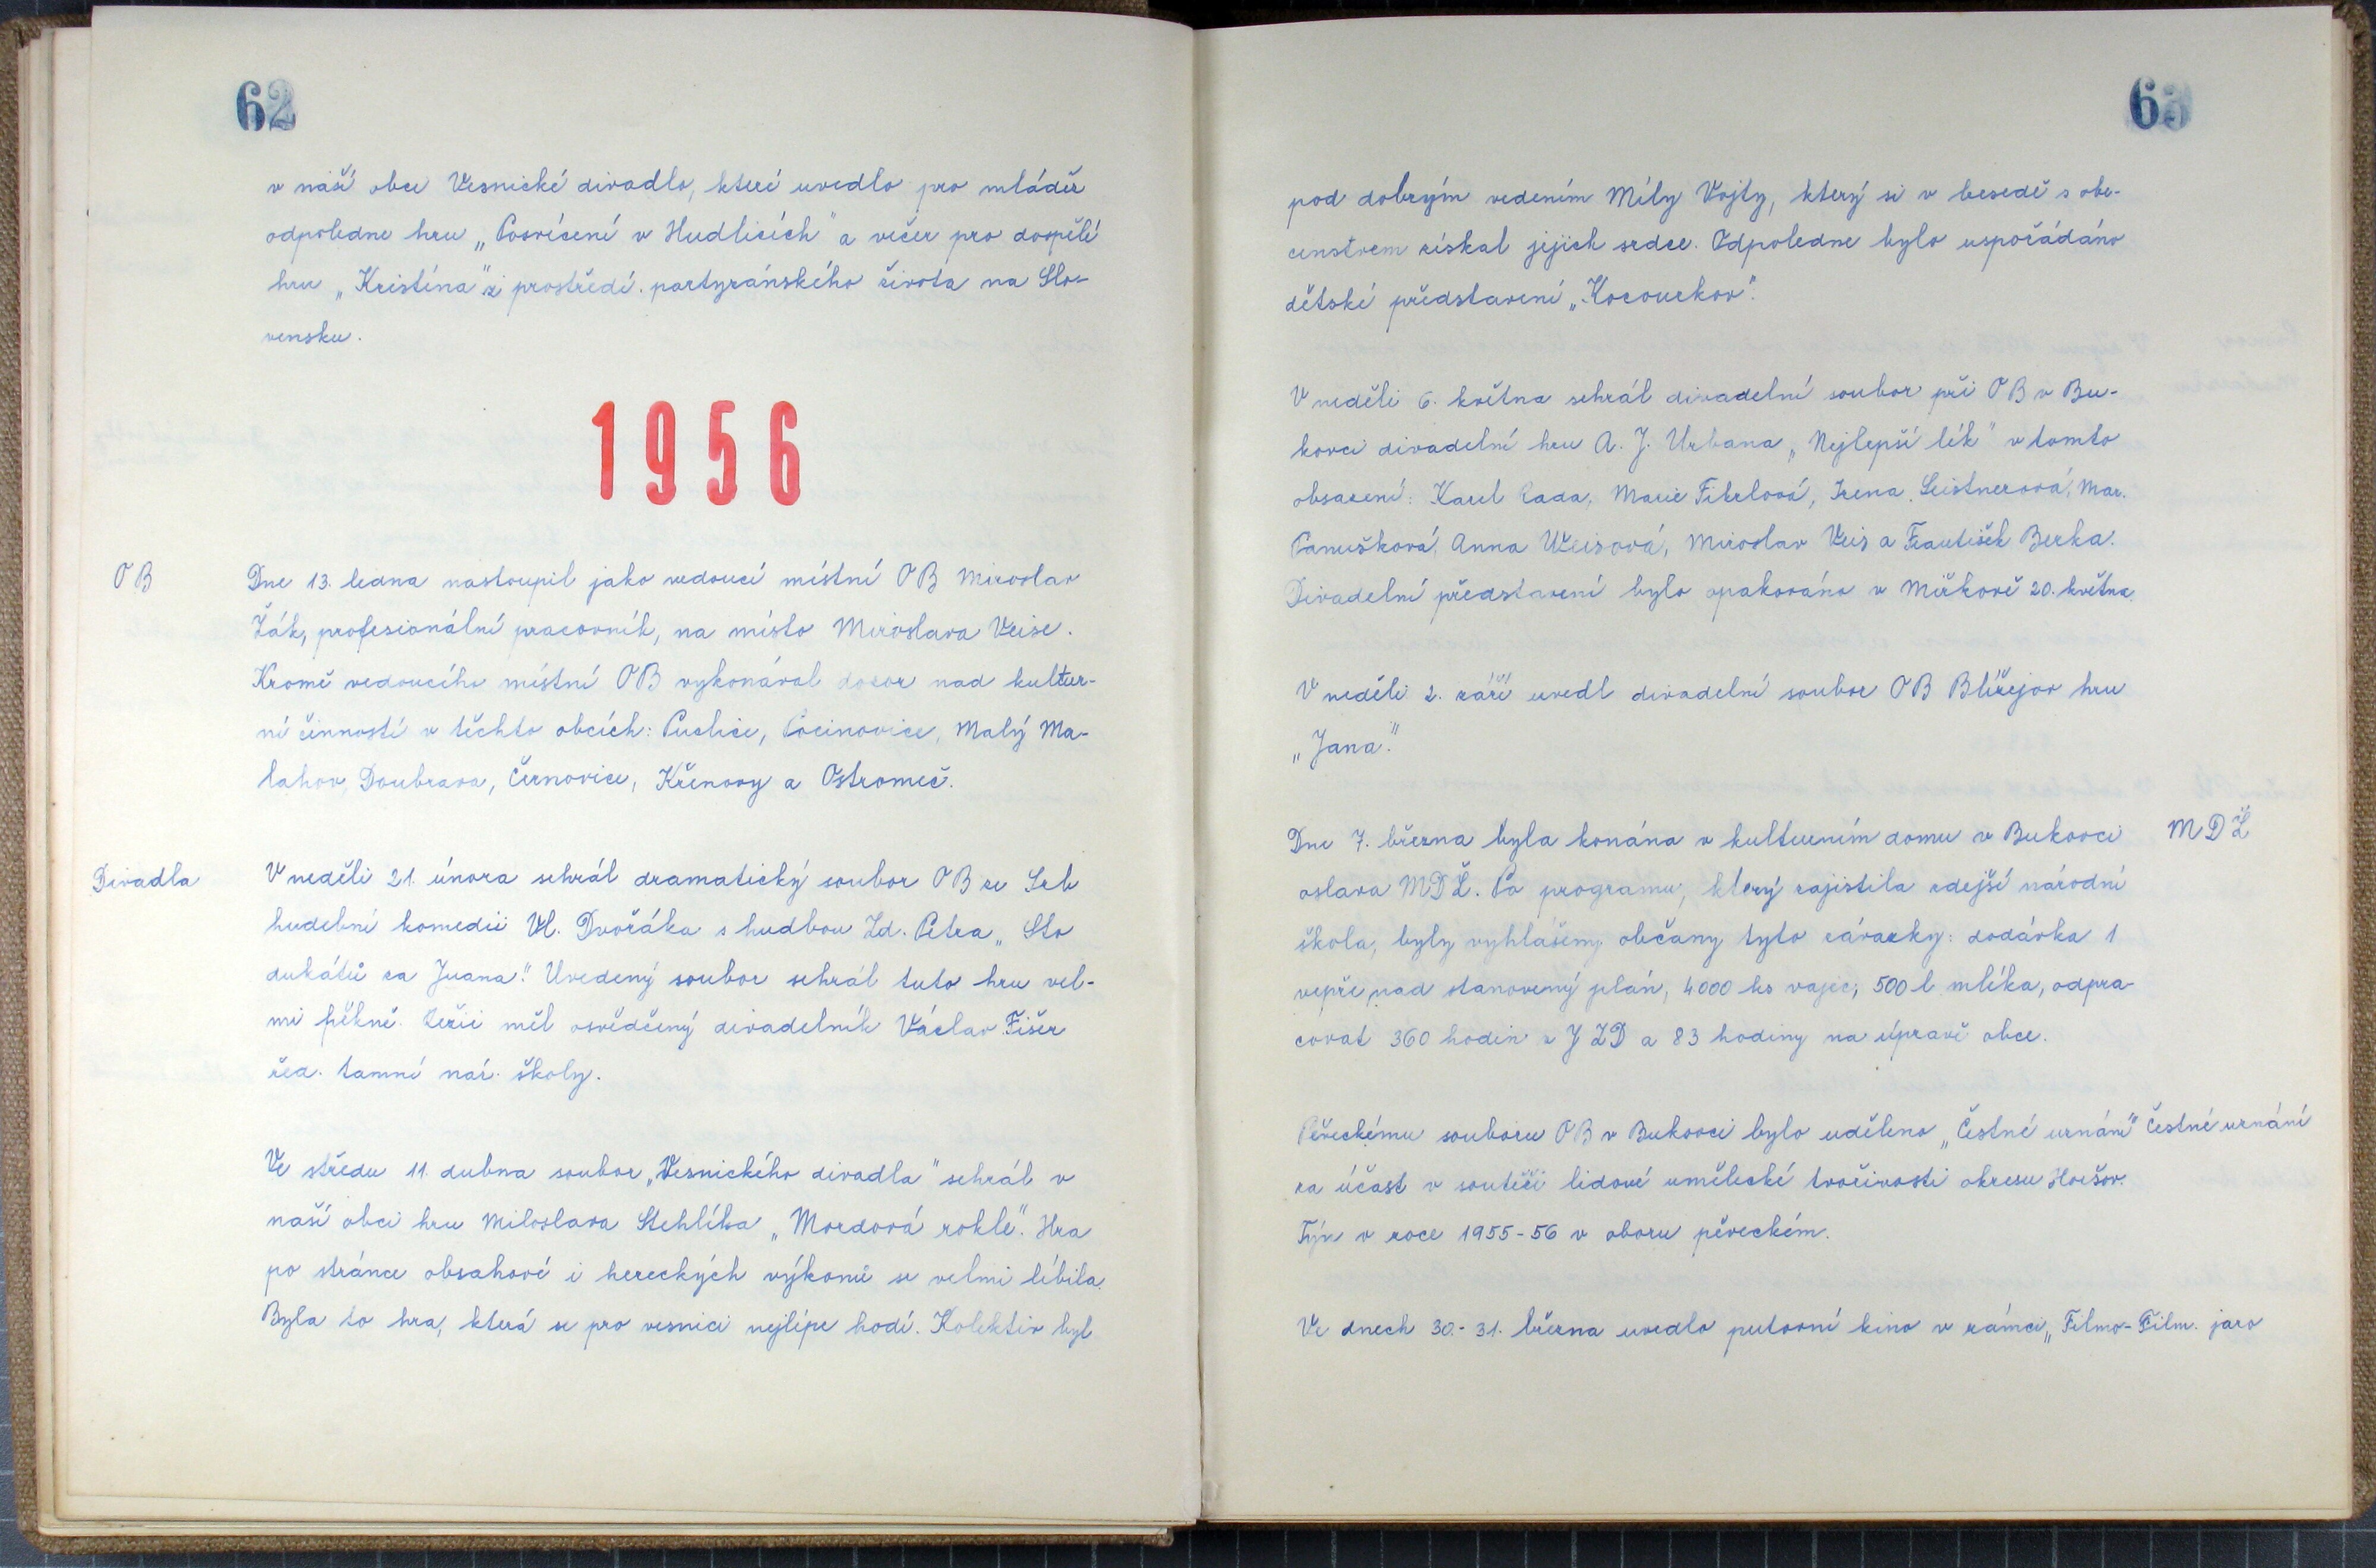 62
v naší obci Vesnické divadlo, které uvedlo pro mládež
odpoledne hru „Posvícení v Hudlicích" a večer pro dospělé
hru „Kristina" z prostředí partyzánského života na Slo-
vensku.
1956
OB
Dne 13. ledna nastoupil jako vedoucí místní OB Miroslav
Žák, profesionální pracovník, na místo Miroslava Veise.
Kromě vedoucího místní OB vykonával dozor nad kultur-
ní činností v těchto obcích: Puclice, Pocinovice, Malý Ma-
lahov, Doubrava, Černovice, Křenovy a Ostromeč.
Divadla
V neděli 21. února sehrál dramatický soubor OB ze Srb
hudební komedii Vl. Dvořáka s hudbou Zd. Petra „Sto
dukátů za Juana." Uvedený soubor sehrál tuto hru vel-
mi pěkně. Režii měl osvědčený divadelník Václav Fišer
řed. tamní nár. školy.
Ve středu 11. dubna soubor „Vesnického divadla" sehrál v
naší obci hru Miloslava Stehlíka „Mordová rokle". Hra
po stránce obsahové i hereckých výkonů se velmi líbila.
Byla to hra, která se pro vesnici nejlépe hodí. Kolektiv byl
63
pod dobrým vedením Míly Vojty, který si v besedě s obe-
censtvem získal jejich srdce. Odpoledne bylo uspořádáno
dětské představení „Kocourkov".
V neděli 6. května sehrál divadelní soubor při OB v Bu-
kovci divadelní hru A. J. Urbana „Nejlepší lék" v tomto
obsazení: Karel Cada, Marie Fikrlová, Irena Leistnerová, Mar.
Panušková, Anna Weisová, Miroslav Veis a František Berka.
Divadelní představení bylo opakováno v Mířkově 20. května.
V neděli 2. září uvedl divadelní soubor OB Blížejov hru
„Jana."
Dne 7. března byla konána v kulturním domu v Bukovci
MDŽ
oslava MDŽ. Po programu, který zajistila zdejší národní
škola, byly vyhlášeny občany tyto závazky: dodávka 1
vepře nad stanovený plán, 4000 ks vajec, 500 l mléka, odpra-
covat 360 hodin v JZD a 83 hodiny na úpravě obce.
Pěveckému souboru OB v Bukovci bylo uděleno „Čestné uznání"
Čestné uznání
za účast v soutěži lidové umělecké tvořivosti okresu Horšov.
Týn v roce 1955-56 v oboru pěveckém.
Ve dnech 30.-31. března uvedlo putovní kino v rámci „Filmo-Film. jaro